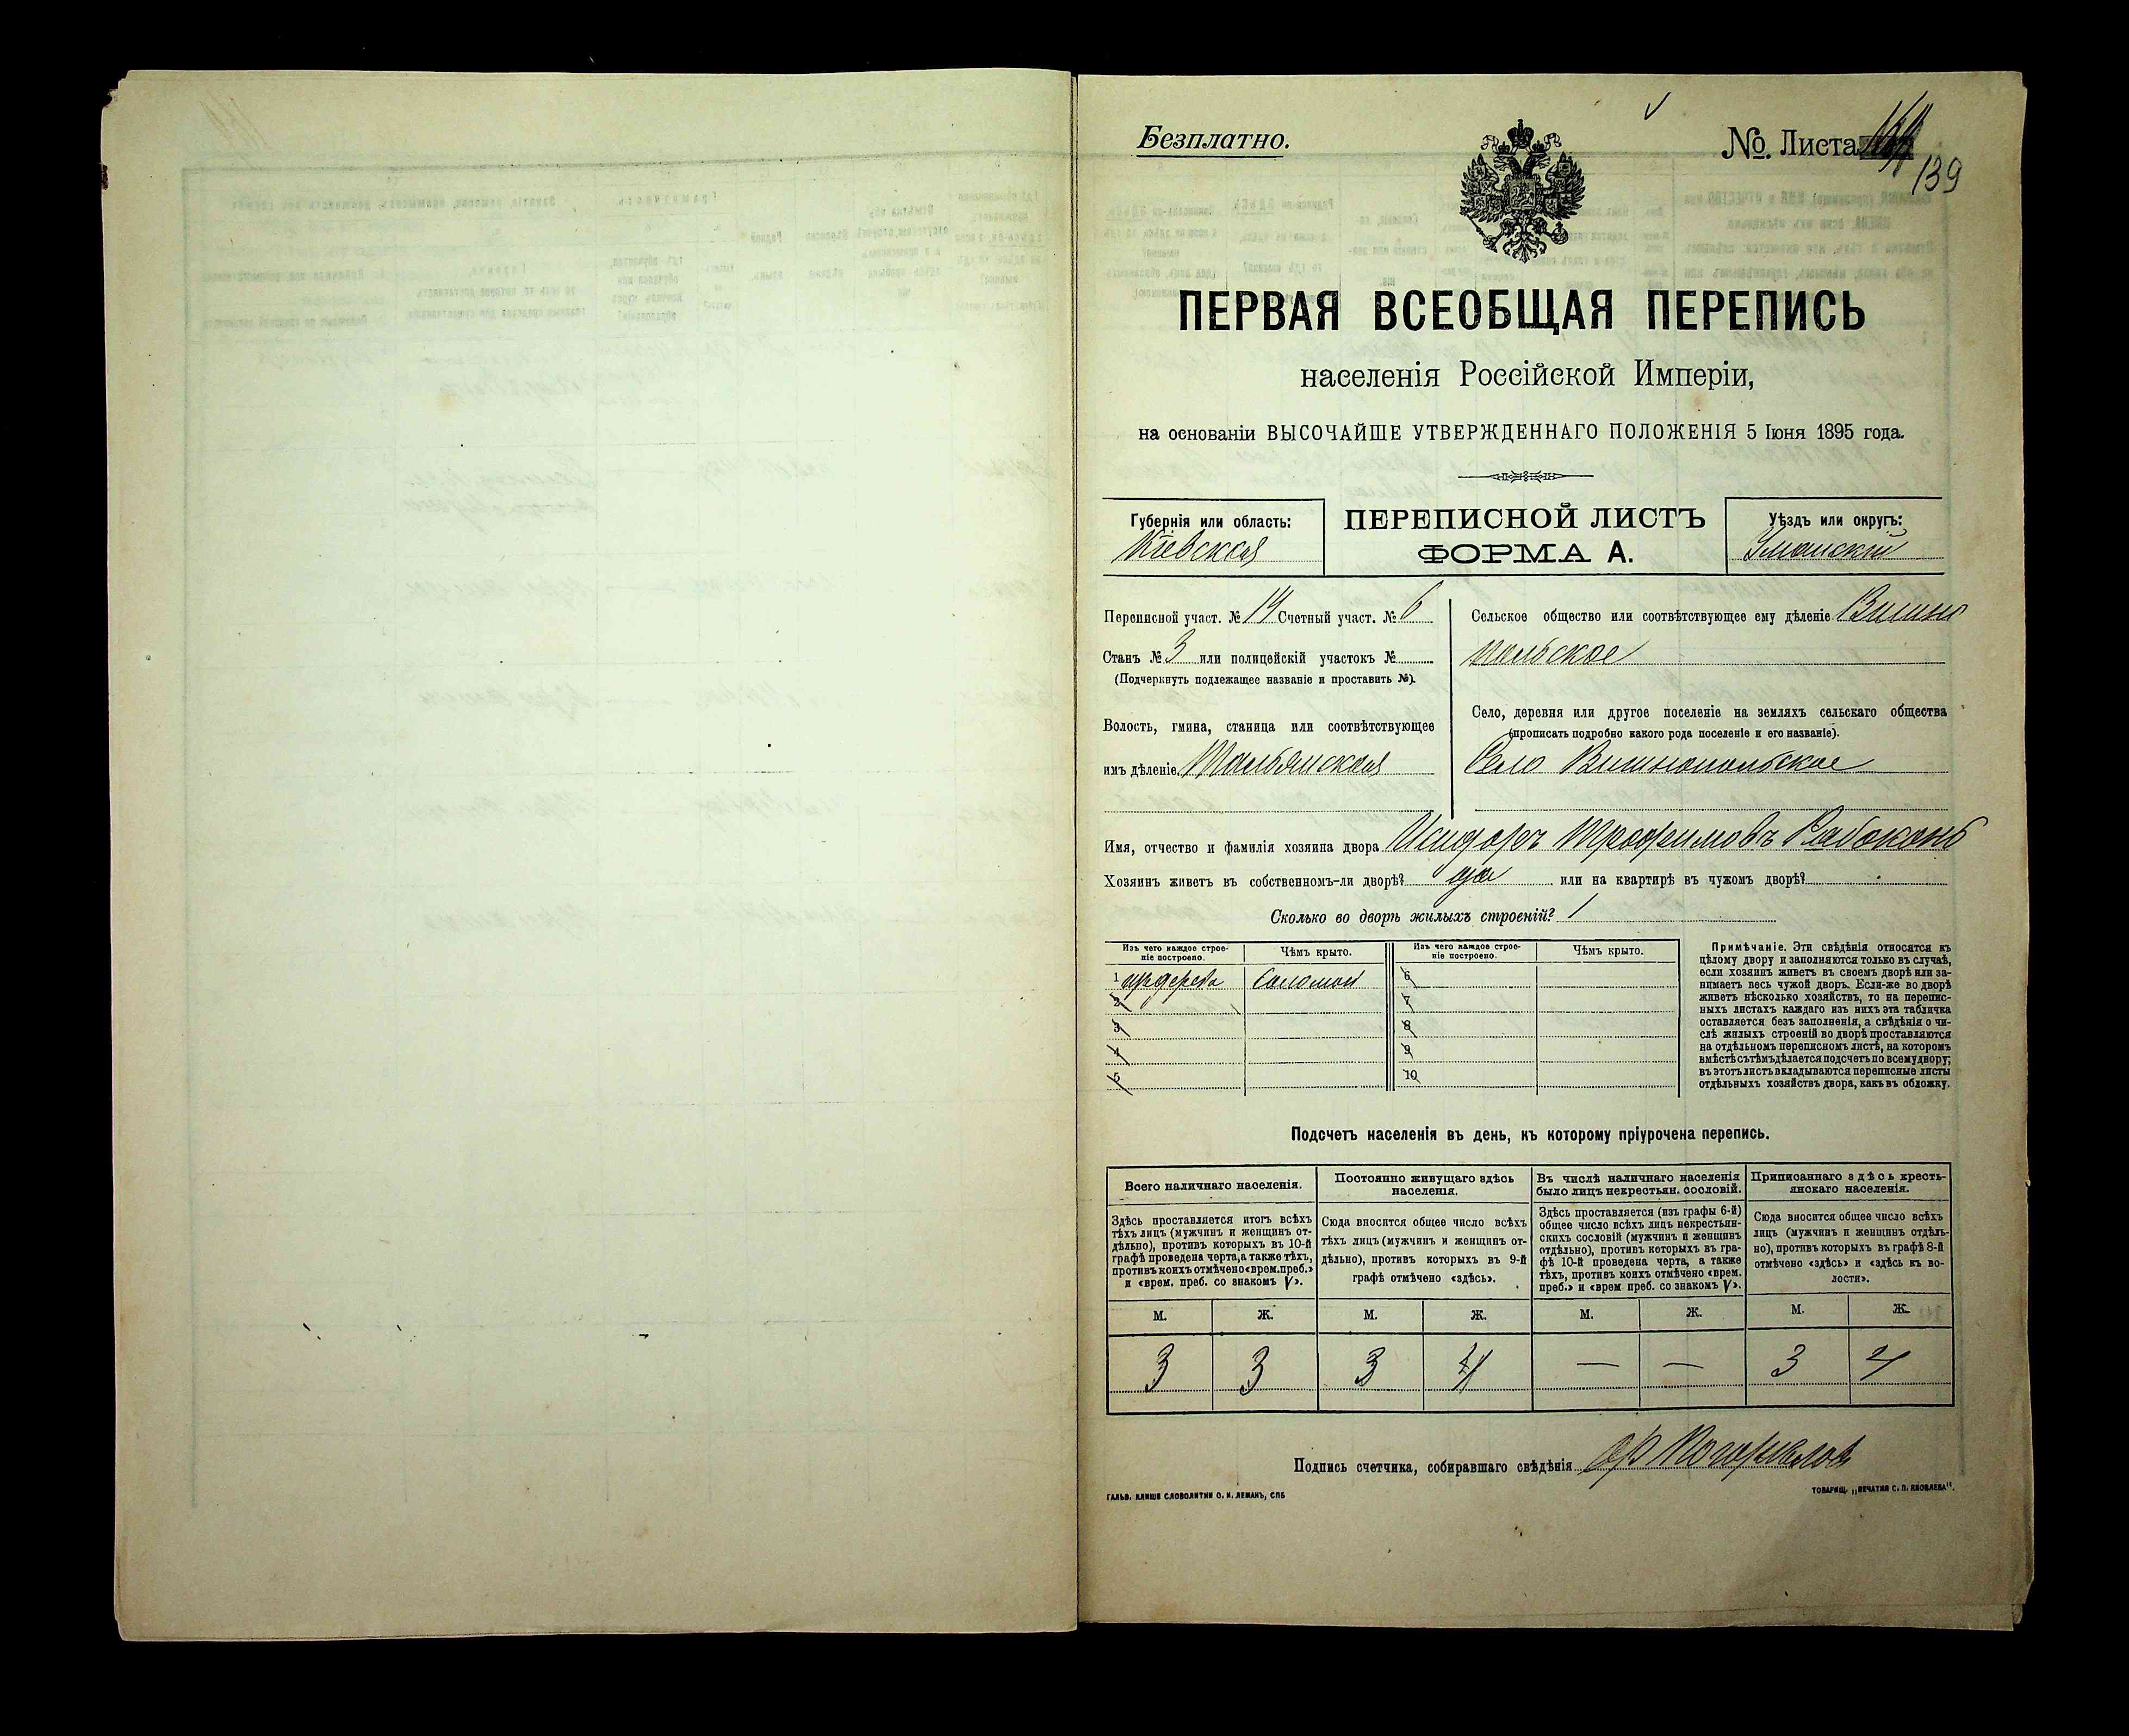 Безплатно.
№. Листа
139
ПЕРВАЯ ВСЕОБЩАЯ ПЕРЕПИСЬ
населенія Россійской Имперіи,
на основаніи ВЫСОЧАЙШЕ УТВЕРЖДЕННАГО ПОЛОЖЕНІЯ 5 Іюня 1895 года.
Губернія или область:
Кіевская
ПЕРЕПИСНОЙ ЛИСТЪ
ФОРМА А.
Уѣздъ или округъ:
Уманскій
Переписной участ. № 14 Счетный участ. № 6
Станъ № 3 или полицейскій участокъ №
(Подчеркнуть подлежащее названіе и проставить №).
Волость, гмина, станица или соотвѣтствующее
имъ дѣленіе Тальянская
Сельское общество или соотвѣтствующее ему дѣленіе Вишно
польское
Село, деревня или другое поселеніе на земляхъ сельскаго общества
(прописать подробно какого рода поселеніе и его названіе).
Село Вишнопольское
Имя, отчество и фамилія хозяина двора Исидоръ Трофимовъ Рабоконь
Хозяинъ живетъ въ собственномъ-ли дворѣ? да или на квартирѣ въ чужомъ дворѣ?
Сколько во дворѣ жилыхъ строеній? 1
Изъ чего каждое строе-
ніе построено.
Чѣмъ крыто.
Изъ чего каждое строе-
ніе построено.
Чѣмъ крыто.
1 изъ дерева соломой
2
3
4
5
6
7
8
9
10
Примѣчаніе. Эти свѣдѣнія относятся къ
цѣлому двору и заполняются только въ случаѣ,
если хозяинъ живетъ въ своемъ дворѣ или за-
нимаетъ весь чужой дворъ. Если-же во дворѣ
живетъ нѣсколько хозяйствъ, то на перепис-
ныхъ листахъ каждаго изъ нихъ эта табличка
оставляется безъ заполненія, а свѣдѣнія о чи-
слѣ жилыхъ строеній во дворѣ проставляются
на отдѣльномъ переписномъ листѣ, на которомъ
вмѣстѣ съ тѣмъ дѣлается подсчетъ по всему двору;
въ этотъ листъ вкладываются переписные листы
отдѣльныхъ хозяйствъ двора, какъ въ обложку.
Подсчетъ населенія въ день, къ которому пріурочена перепись.
Всего наличнаго населенія.
Здѣсь проставляется итогъ всѣхъ
тѣхъ лицъ (мужчинъ и женщинъ от-
дѣльно), противъ которыхъ въ 10-й
графѣ проведена черта, а также тѣхъ,
противъ коихъ отмѣчено «врем. преб.»
и «врем. преб. со знакомъ V».
Постоянно живущаго здѣсь
населенія.
Сюда вносится общее число всѣхъ
тѣхъ лицъ (мужчинъ и женщинъ от-
дѣльно), противъ которыхъ въ 9-й
графѣ отмѣчено «здѣсь».
Въ числѣ наличнаго населенія
было лицъ некрестьян. сословій.
Здѣсь проставляется (изъ графы 6-й)
общее число всѣхъ лицъ некрестьян-
скихъ сословій (мужчинъ и женщинъ
отдѣльно), противъ которыхъ въ гра-
фѣ 10-й проведена черта, а также
тѣхъ, противъ коихъ отмѣчено «врем.
преб.» и «врем преб. со знакомъ V».
Приписаннаго здѣсь кресть-
янскаго населенія.
Сюда вносится общее число всѣхъ
лицъ (мужчинъ и женщинъ отдѣль-
но), противъ которыхъ въ графѣ 8-й
отмѣчено «здѣсь» и «здѣсь къ во-
лости».
М. Ж. М. Ж. М. Ж. М. Ж.
3 3 3 4 — — 3 4
Подпись счетчика, собиравшаго свѣдѣнія
ГАЛЬВ. КЛИШЕ СЛОВОЛИТНИ О. И. ЛЕМАНЪ, СПБ
ТОВАРИЩ. „ПЕЧАТНЯ С. П. ЯКОВЛЕВА".